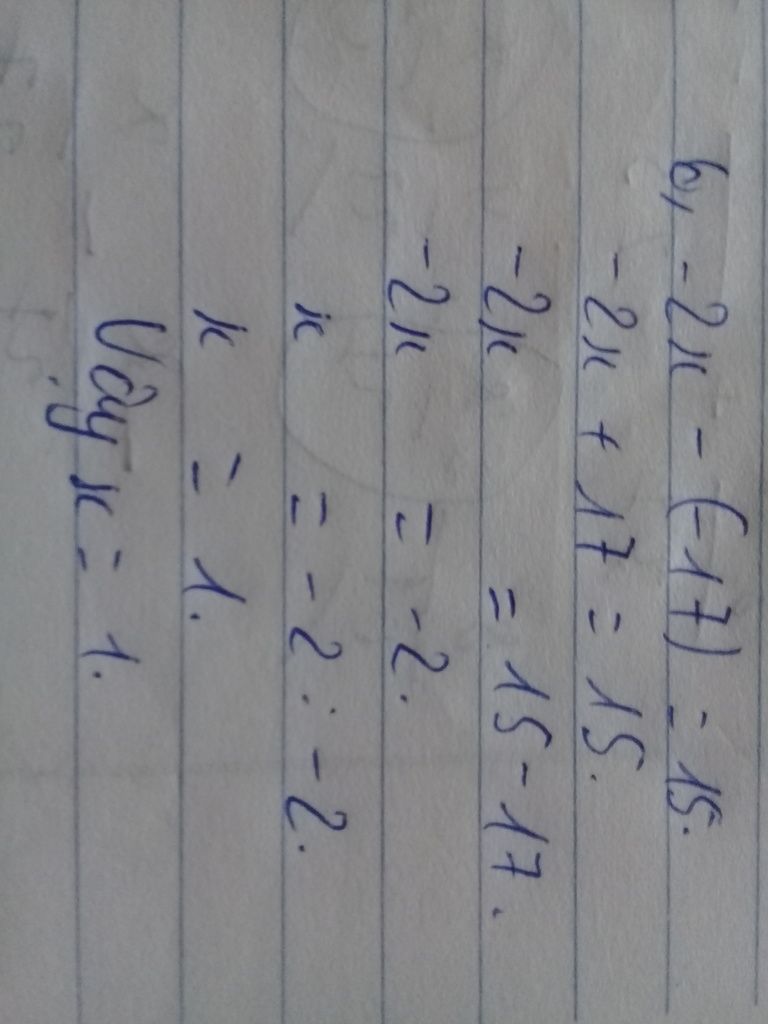 b, -2x - (-17) = 15.
-2x + 17 = 15.
-2x = 15 - 17.
-2x = -2.
x = -2 : -2.
x = 1.
Vậy x = 1.